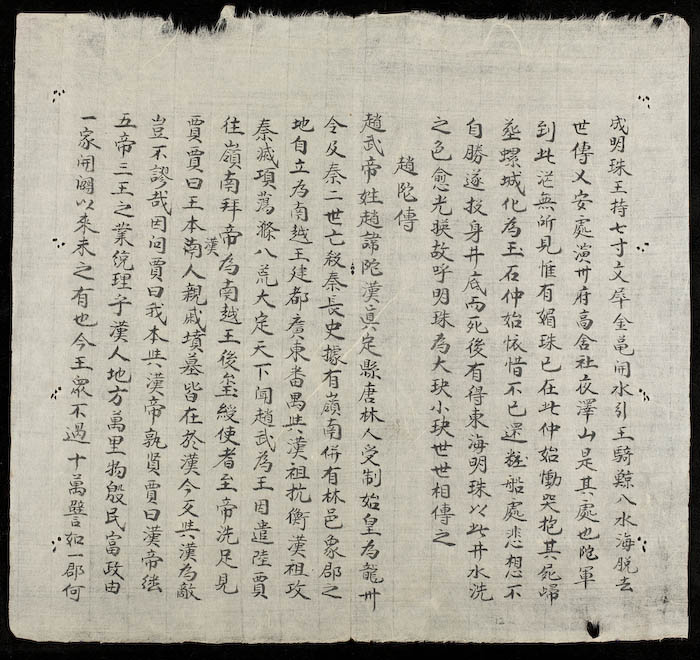 成明珠王持七寸文犀金黽開水引王騎鯨入水海脫去
世傳乂安處演州府高舍社夜澤山是其處也陀軍
到此茫無所見惟有媚珠已在此仲始慟哭抱其屍歸
塟螺城化為玉石仲始怀惜不已還粧船處悲想不
自勝遂投身井底而死後有得東海明珠以此井水洗
之色愈光暎故呼明珠為大玦小玦世世相傳之
趙陀傳
趙武帝姓趙諱陀漢真定縣唐林人受制始皇為龍州
令及秦二世亡殺秦長史據有嶺南併有林邑象郡之
地自立為南越王建都廣東番禺與漢祖抗衡漢祖攻
秦滅項蕩滌八荒大定天下聞趙武為王因遣陸賈
往嶺南拜帝為南越王後璽綬使者至帝洗足見
賈賈曰王本漢南人親戚墳墓皆在於漢今反與漢為敵
豈不謬哉因问賈曰我本與漢帝孰賢賈曰漢帝继
五帝三王之業统理乎漢人地方萬里物殷民富政由
一家開闢以来未之有也今王衆不過十萬譬如一郡何